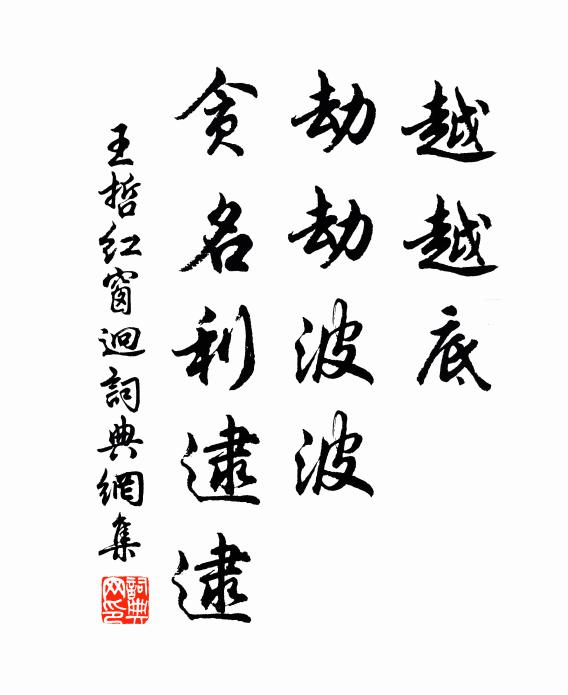 越越底
劫劫波波
貪名利逮逮
王哲紅窗迥詞典網集
詞典网印